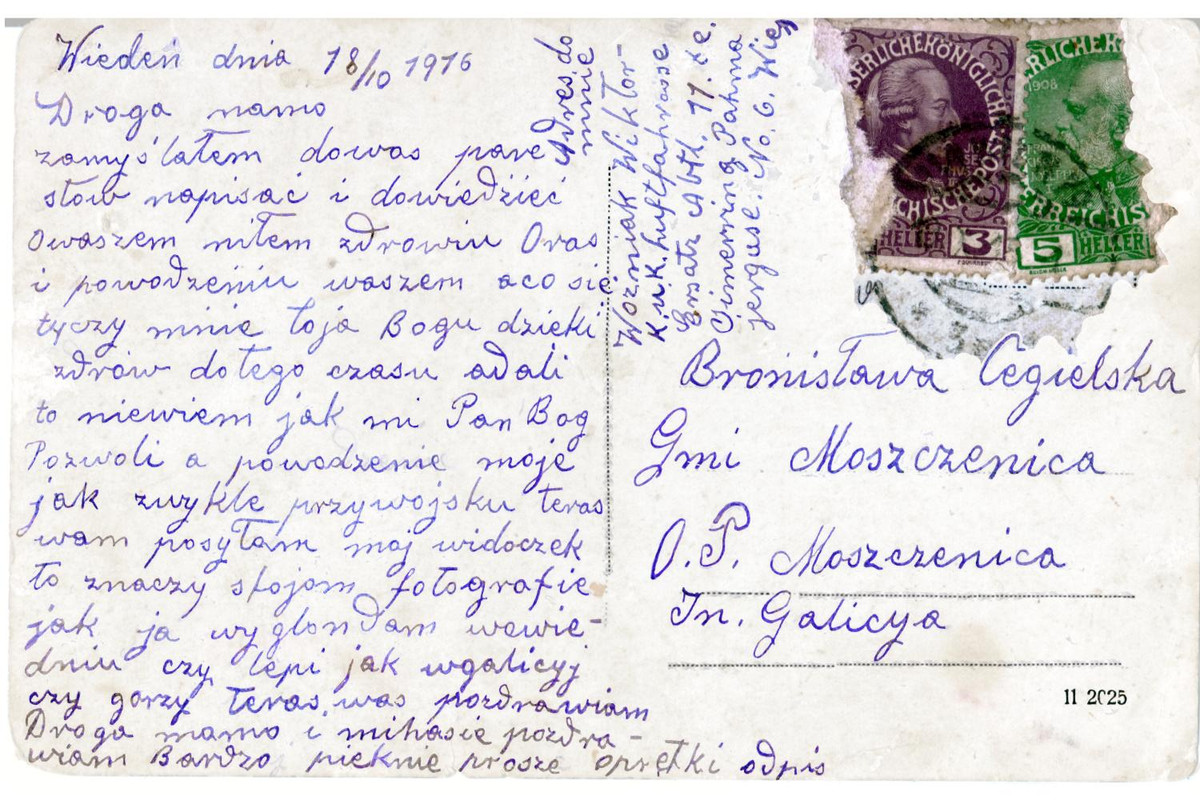 Wiedeń dnia 18/10 1916
Droga namo
zamyślałem dowas pare
słow napisać i dowiedźieć
owaszem niłem zdrowiu Oras
i powodzeniu waszem aco się
tyczy mnie toja Bogu dzięki
zdrów dotego czasu adali
to niewiem jak mi Pan Bog
Pozwoli a powodzenie moje
jak zwykle przywojsku teras
wam posyłam moj widoczek
to znaczy sfojom fotografie
jak ja wyglondam wewie-
dniu czy lepi jak wgalicyj
czy gorzy teras was pozdrawiam
Droga mamo i mihasie pozdra-
wiam Bardzo pieknie prosze oprętki odpis
Adres do
mnie
Wozniak Wiktor-
K.u.k. huftfahrasse
Ersatz Abtl. 11. te.
Simering Pahma
jerguse. No. 6. Wię
SERLICHEKÖNIGLICH
JO
SE
PHUS
II
CHISCHEPOST
HELLER 3
ERLICHEK
1908
FRAN
ERREICHIS
5 HELLER
Bronisława Cegielska
Gmi Moszczenica
O.P. Moszczenica
In. Galicya
11 2025